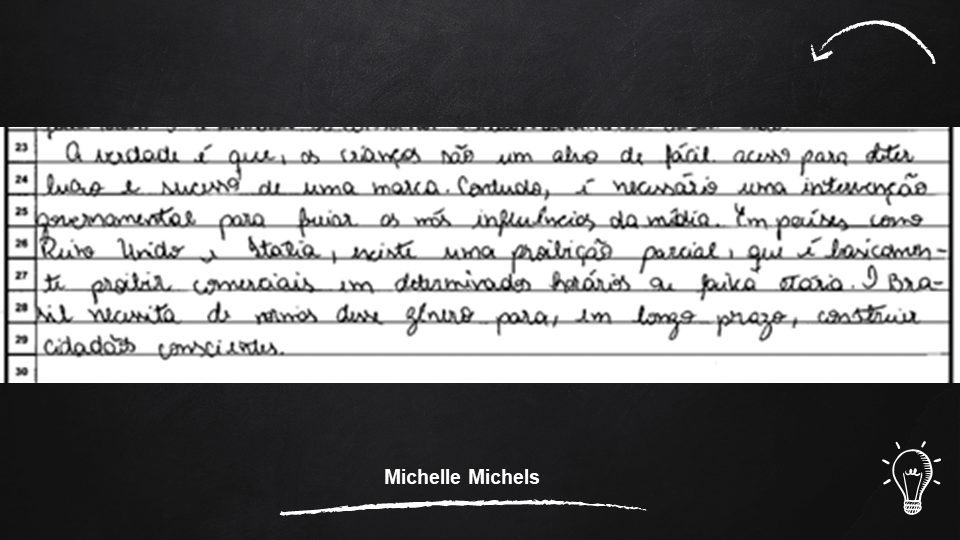 23 A verdade é que, as crianças são um alvo de fácil acesso para obter
24 lucro e sucesso de uma marca. Contudo, é necessário uma intervenção
25 governamental para frear as más influências da mídia. Em países como
26 Reino Unido e Itália, existe uma proibição parcial, que é basicamen-
27 te proibir comerciais em determinados horários a faixa etária. O Bra-
28 sil necessita de normas desse gênero para, em longo prazo, construir
29 cidadãos conscientes.
30
Michelle Michels